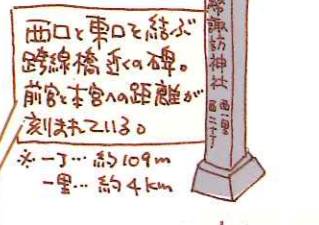 西口と東口を結ぶ
跨線橋近くの碑。
前宮と本宮への距離が
刻まれている。
※一丁…約109m
一里…約4km
諏訪神社
西一里